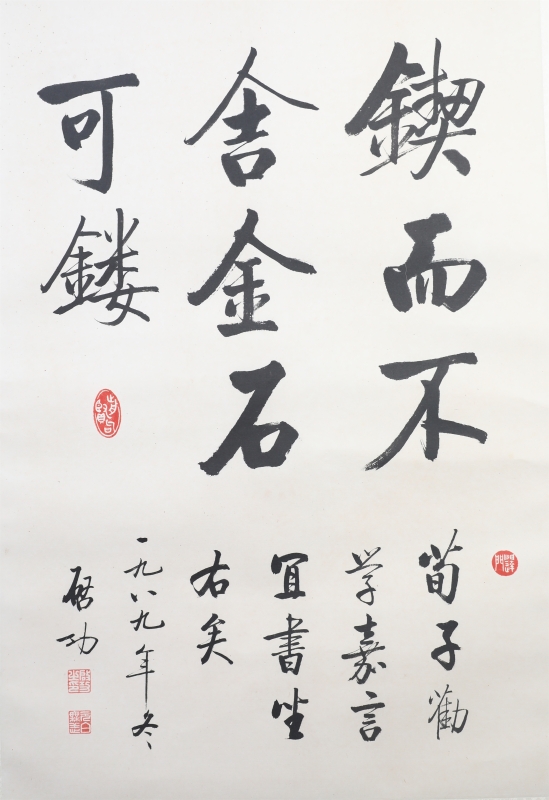 鍥而不
舍金石
可鏤
荀子勸
学嘉言
宜書坐
右矣
一九八九年冬
啓功